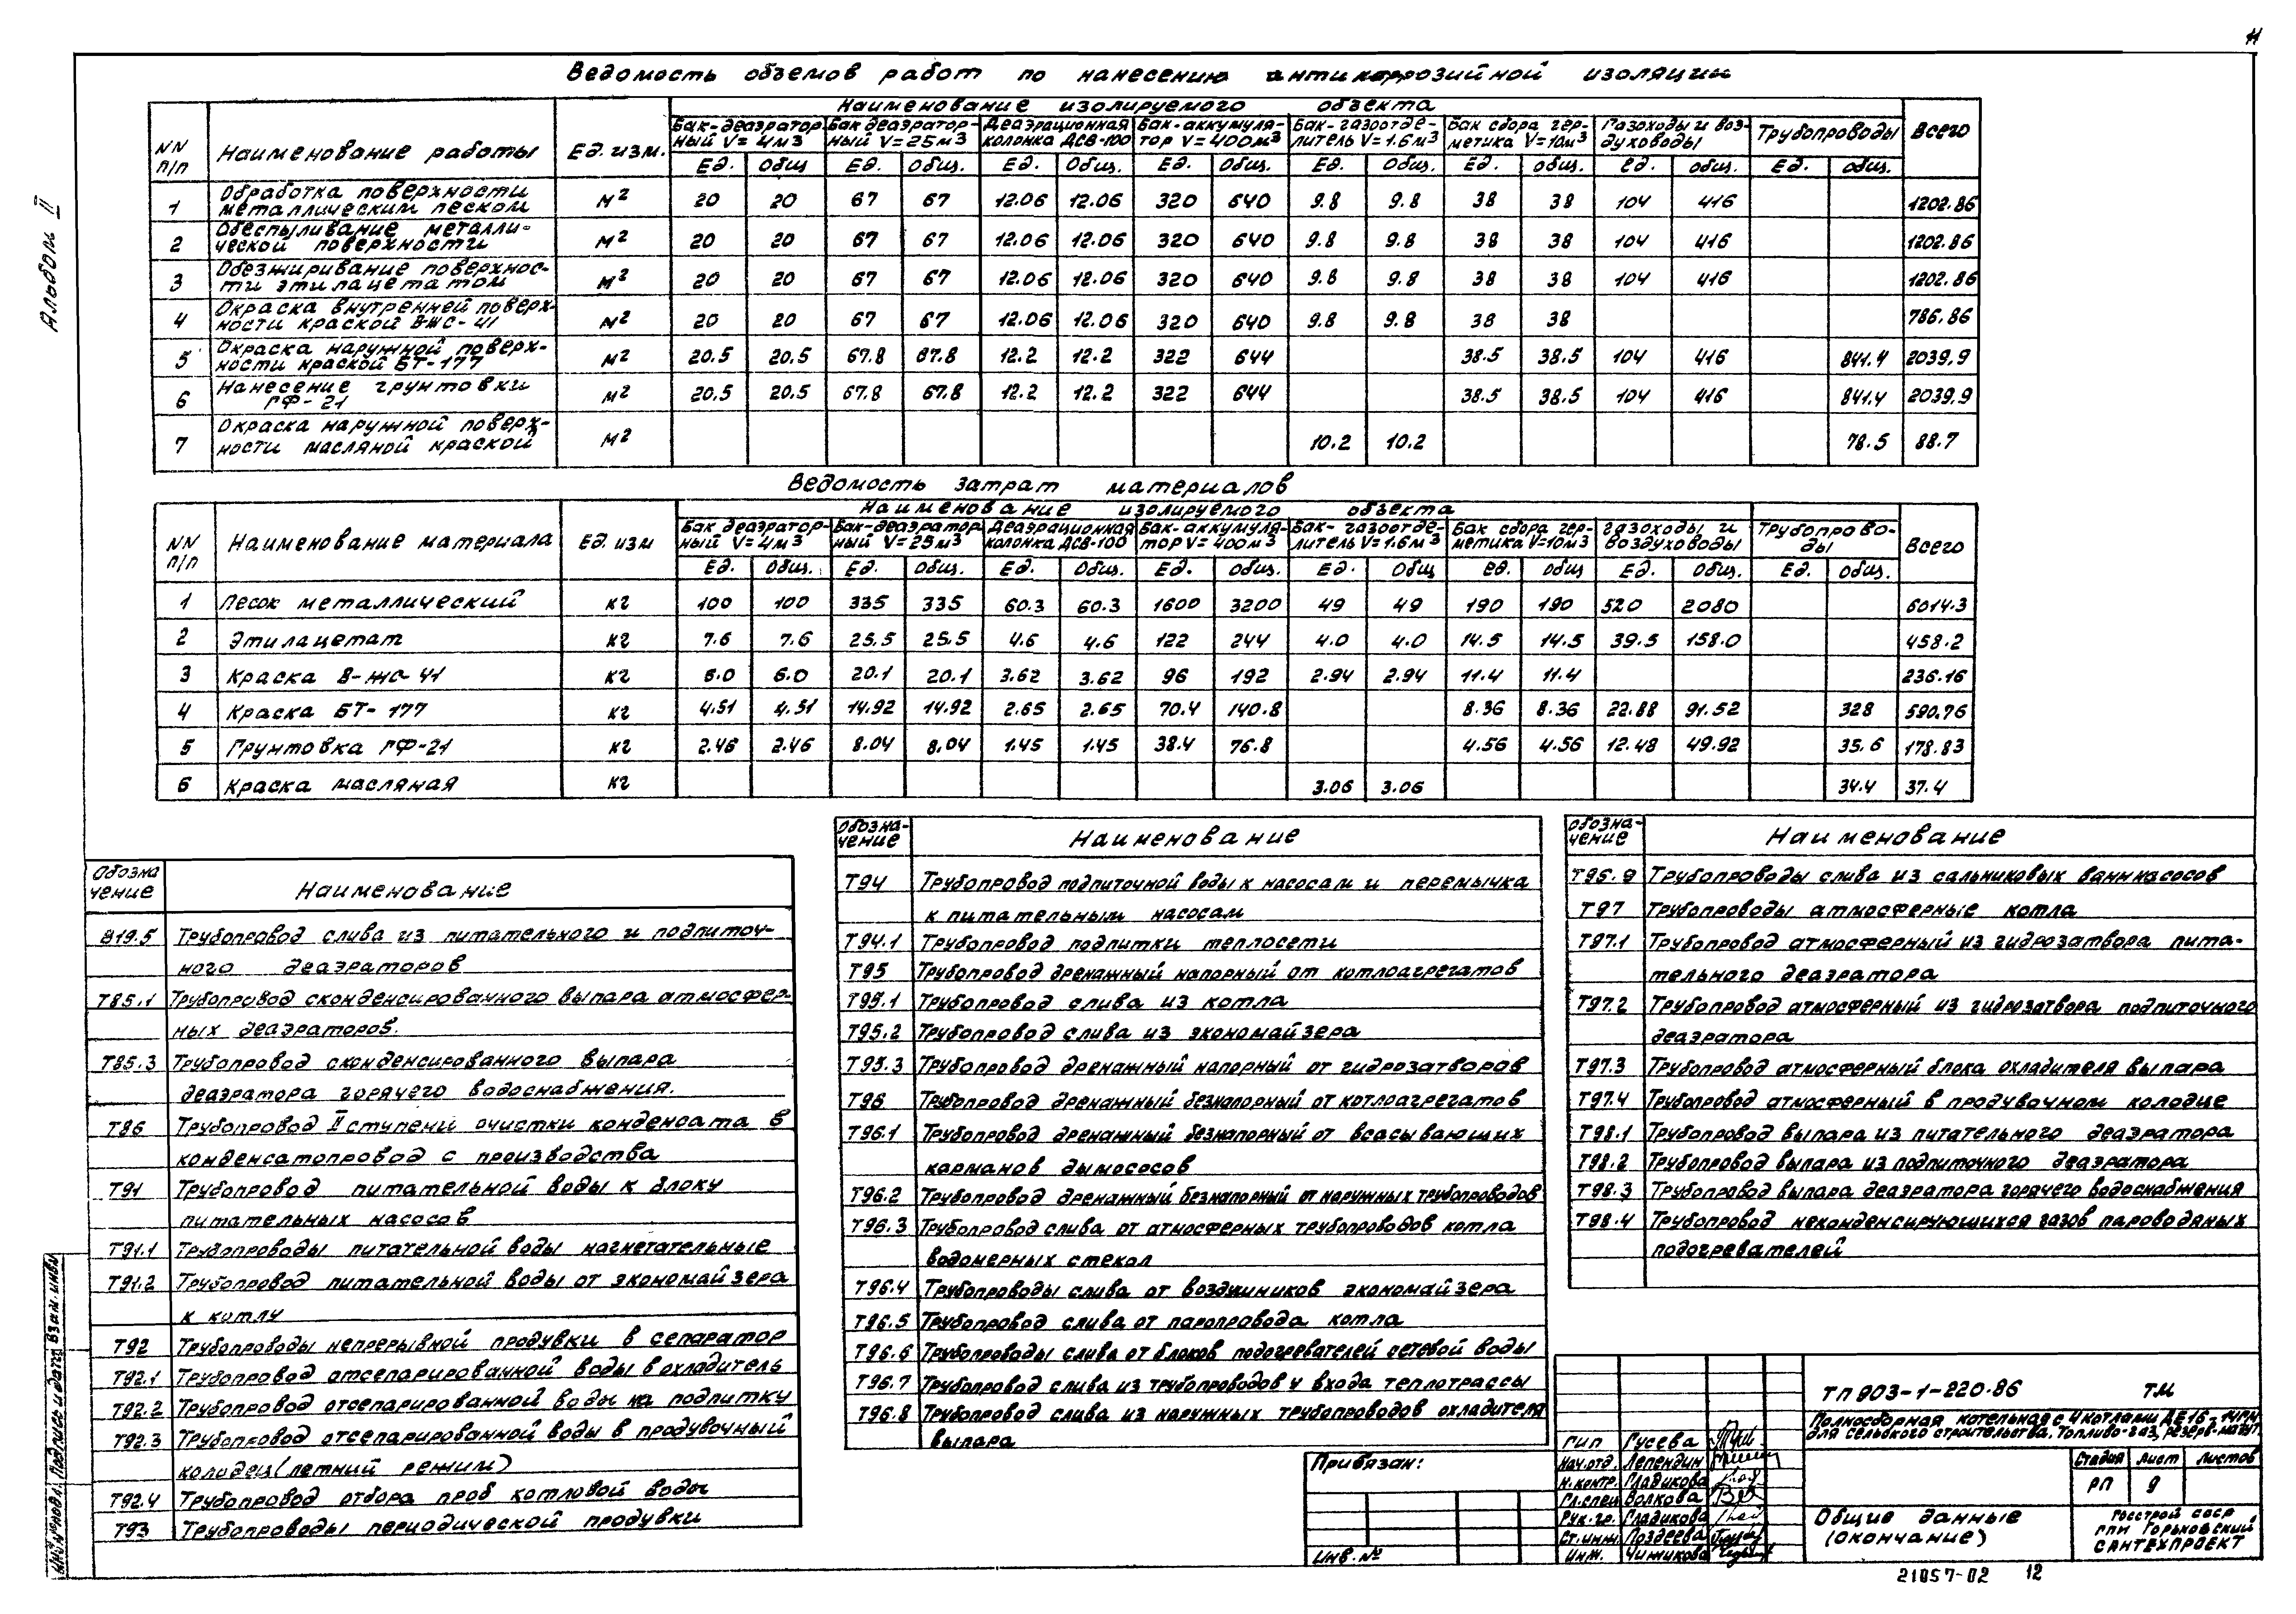 11
Альбом II
Ведомость объемов работ по нанесению антикоррозийной изоляции
NN п/п | Наименование работы | Ед. изм. | Наименование изолируемого объекта | Всего
Бак-деаэраторный V=4м3 | Бак деаэраторный V=25м3 | Деаэрационная колонка ДСВ-100 | Бак-аккумулятор V=400м3 | Бак-газоотделитель V=1.6м3 | Бак сбора герметика V=10м3 | Газоходы и воздуховоды | Трубопроводы
Ед. | Общ | Ед. | Общ. | Ед. | Общ. | Ед. | Общ. | Ед. | Общ. | Ед. | Общ. | Ед. | Общ. | Ед. | Общ.
1 | Обработка поверхности металлическим песком | м2 | 20 | 20 | 67 | 67 | 12.06 | 12.06 | 320 | 640 | 9.8 | 9.8 | 38 | 38 | 104 | 416 | 1202.86
2 | Обеспыливание металлической поверхности | м2 | 20 | 20 | 67 | 67 | 12.06 | 12.06 | 320 | 640 | 9.8 | 9.8 | 38 | 38 | 104 | 416 | 1202.86
3 | Обезжиривание поверхности этилацетатом | м2 | 20 | 20 | 67 | 67 | 12.06 | 12.06 | 320 | 640 | 9.8 | 9.8 | 38 | 38 | 104 | 416 | 1202.86
4 | Окраска внутренней поверхности краской В-ЖС-41 | м2 | 20 | 20 | 67 | 67 | 12.06 | 12.06 | 320 | 640 | 9.8 | 9.8 | 38 | 38 | 786.86
5 | Окраска наружной поверхности краской БТ-177 | м2 | 20.5 | 20.5 | 67.8 | 67.8 | 12.2 | 12.2 | 322 | 644 | 38.5 | 38.5 | 104 | 416 | 841.4 | 2039.9
6 | Нанесение грунтовки ГФ-21 | м2 | 20.5 | 20.5 | 67.8 | 67.8 | 12.2 | 12.2 | 322 | 644 | 38.5 | 38.5 | 104 | 416 | 841.4 | 2039.9
7 | Окраска наружной поверхности масляной краской | м2 | 10.2 | 10.2 | 78.5 | 88.7
Ведомость затрат материалов
NN п/п | Наименование материала | Ед. изм | Наименование изолируемого объекта | Всего
Бак деаэраторный V=4м3 | Бак-деаэраторный V=25м3 | Деаэрационная колонка ДСВ-100 | Бак-аккумулятор V=400м3 | Бак-газоотделитель V=1.6м3 | Бак сбора герметика V=10м3 | Газоходы и воздуховоды | Трубопроводы
Ед. | Общ. | Ед. | Общ. | Ед. | Общ. | Ед. | Общ. | Ед. | Общ | Ед. | Общ | Ед. | Общ. | Ед. | Общ.
1 | Песок металлический | кг | 100 | 100 | 335 | 335 | 60.3 | 60.3 | 1600 | 3200 | 49 | 49 | 190 | 190 | 520 | 2080 | 6014.3
2 | Этилацетат | кг | 7.6 | 7.6 | 25.5 | 25.5 | 4.6 | 4.6 | 122 | 244 | 4.0 | 4.0 | 14.5 | 14.5 | 39.5 | 158.0 | 458.2
3 | Краска В-ЖС-41 | кг | 6.0 | 6.0 | 20.1 | 20.1 | 3.62 | 3.62 | 96 | 192 | 2.94 | 2.94 | 11.4 | 11.4 | 236.16
4 | Краска БТ-177 | кг | 4.51 | 4.51 | 14.92 | 14.92 | 2.65 | 2.65 | 70.4 | 140.8 | 8.36 | 8.36 | 22.88 | 91.52 | 328 | 590.76
5 | Грунтовка ГФ-21 | кг | 2.46 | 2.46 | 8.04 | 8.04 | 1.45 | 1.45 | 38.4 | 76.8 | 4.56 | 4.56 | 12.48 | 49.92 | 35.6 | 178.83
6 | Краска масляная | кг | 3.06 | 3.06 | 34.4 | 37.4
Обозначение | Наименование
В19.5 Трубопровод слива из питательного и подпиточ-
ного деаэраторов
Т85.1 Трубопровод сконденсированного выпара атмосфер-
ных деаэраторов.
Т85.3 Трубопровод сконденсированного выпара
деаэратора горячего водоснабжения.
Т86 Трубопровод II ступени очистки конденсата в
конденсатопровод с производства
Т91 Трубопровод питательной воды к блоку
питательных насосов
Т91.1 Трубопроводы питательной воды нагнетательные
Т91.2 Трубопровод питательной воды от экономайзера
к котлу
Т92 Трубопроводы непрерывной продувки в сепаратор
Т92.1 Трубопровод отсепарированной воды в охладитель
Т92.2 Трубопровод отсепарированной воды на подпитку
Т92.3 Трубопровод отсепарированной воды в продувочный
колодец (летний режим)
Т92.4 Трубопровод отбора проб котловой воды
Т93 Трубопроводы периодической продувки
Обозначение | Наименование
Т94 Трубопровод подпиточной воды к насосам и перемычка
к питательным насосам
Т94.1 Трубопровод подпитки теплосети
Т95 Трубопровод дренажный напорный от котлоагрегатов
Т95.1 Трубопровод слива из котла
Т95.2 Трубопровод слива из экономайзера
Т95.3 Трубопровод дренажный напорный от гидрозатворов
Т96 Трубопровод дренажный безнапорный от котлоагрегатов
Т96.1 Трубопровод дренажный безнапорный от всасывающих
карманов дымососов
Т96.2 Трубопровод дренажный безнапорный от наружных трубопроводов
Т96.3 Трубопровод слива от атмосферных трубопроводов котла
водомерных стекол
Т96.4 Трубопроводы слива от воздушников экономайзера
Т96.5 Трубопровод слива от паропровода котла
Т96.6 Трубопроводы слива от блоков подогревателей сетевой воды
Т96.7 Трубопровод слива из трубопроводов у входа теплотрассы
Т96.8 Трубопровод слива из наружных трубопроводов охладителя
выпара
Обозначение | Наименование
Т96.9 Трубопроводы слива из сальниковых ванн насосов
Т97 Трубопроводы атмосферные котла
Т97.1 Трубопровод атмосферный из гидрозатвора пита-
тельного деаэратора
Т97.2 Трубопровод атмосферный из гидрозатвора подпиточного
деаэратора
Т97.3 Трубопровод атмосферный блока охладителя выпара
Т97.4 Трубопровод атмосферный в продувочном колодце
Т98.1 Трубопровод выпара из питательного деаэратора
Т98.2 Трубопровод выпара из подпиточного деаэратора
Т98.3 Трубопровод выпара деаэратора горячего водоснабжения
Т98.4 Трубопровод неконденсирующихся газов пароводяных
подогревателей
Привязан:
Инв. №
ТП 903-1-220.86 ТМ
Полносборная котельная с 4 котлами ДЕ16-14ГМ
для сельского строительства. Топливо-газ, резерв-мазут
ГИП Гусева
Нач.отд. Лепендин
Н.контр. Гладикова
Гл.спец Волкова
Рук.гр. Гладикова
Ст.инж. Поздеева
Инж. Чижикова
Стадия | Лист | Листов
РП | 9
Общие данные
(окончание)
Госстрой СССР
ГПИ Горьковский
САНТЕХПРОЕКТ
21857-02 12
Инв.№подл. Подпись и дата Взам.инв№